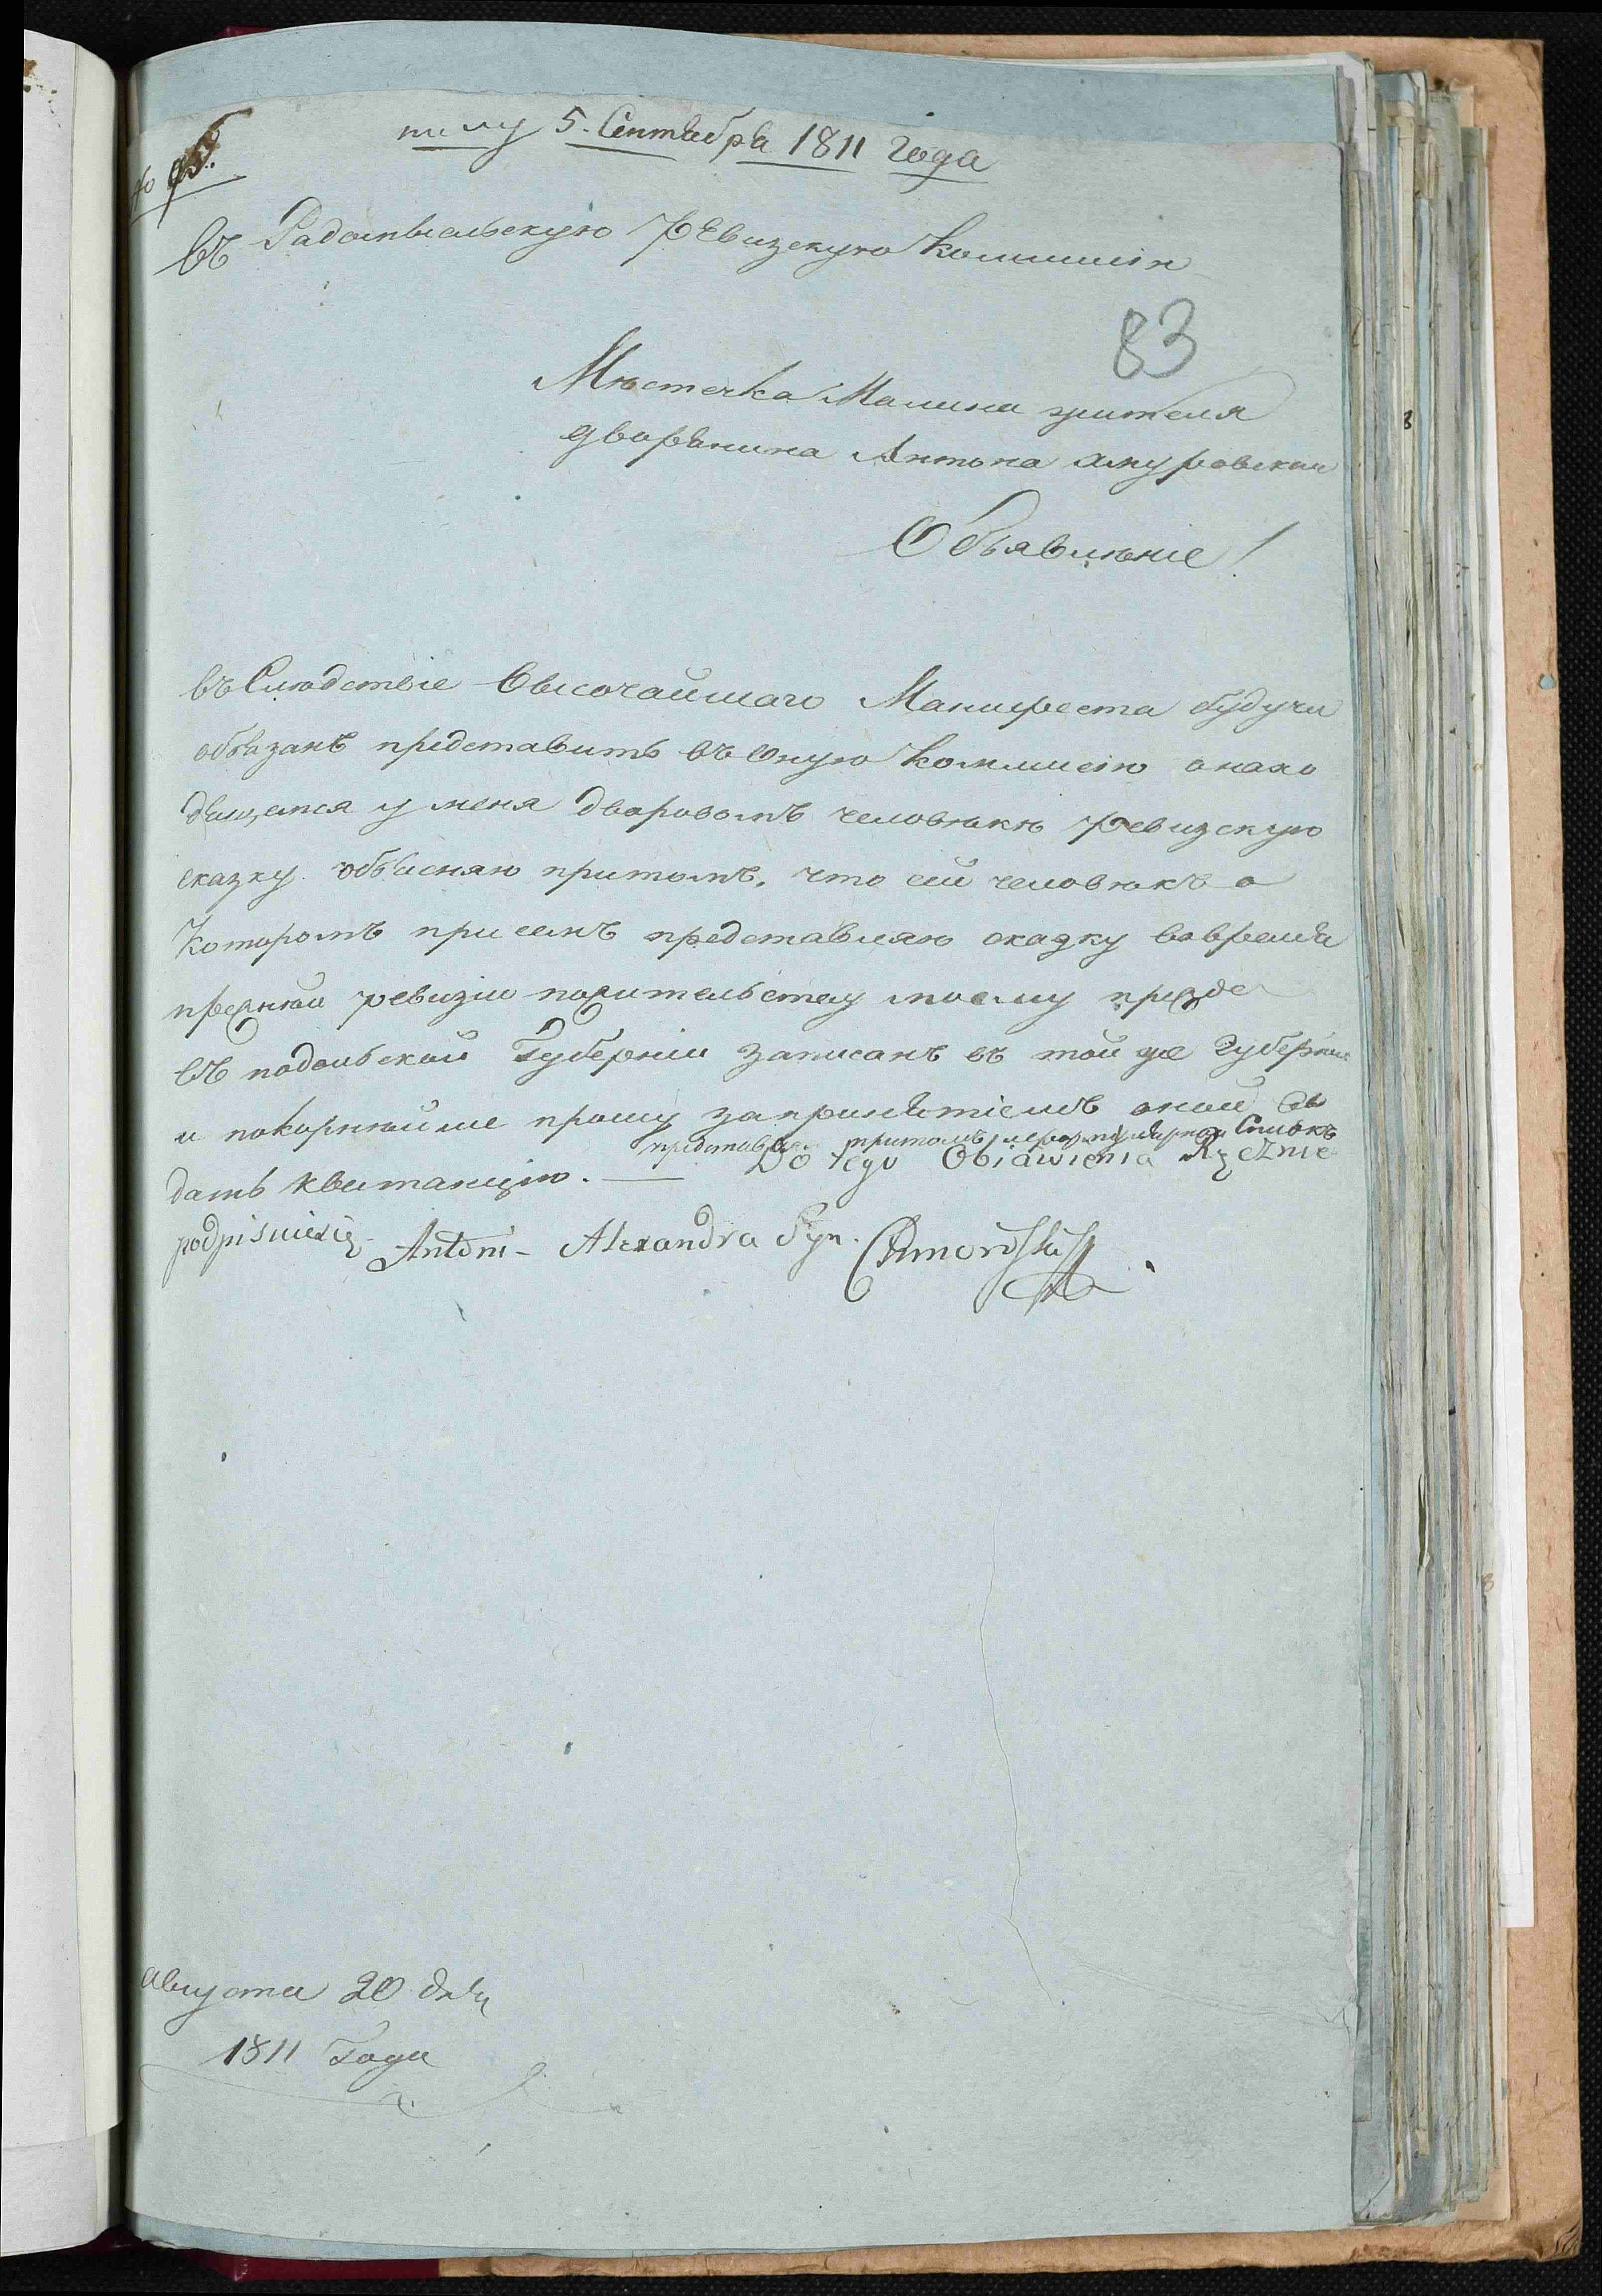 5. Сентября 1811 года
въ Радомысльскую Ревизскую Коммисію
83
Мѣстечка Малина жителя
дворянина Антона
Объявленіе!
въ Слѣдствіе Высочайшаго Манифеста будучи
обязанъ представить въ оную Коммисію о нахо
дящемся у меня дворовомъ человѣкѣ ревизскую
сказку. объясняю притомъ, что сей человѣкъ о
которомъ при семъ представляю сказку вовремя
прежней ревизіи пожительству моему прежде
въ подольской Губерніи записанъ въ той же Губерніи
и покорнѣйше прошу запринятіемъ оной вы
представляя притомъ Списокъ
дать квитанцію. — Do tego Obiawienia Ręcznie
podpisuiesię Antoni - Alexandra Syn.
августа 20 дня
1811 Года